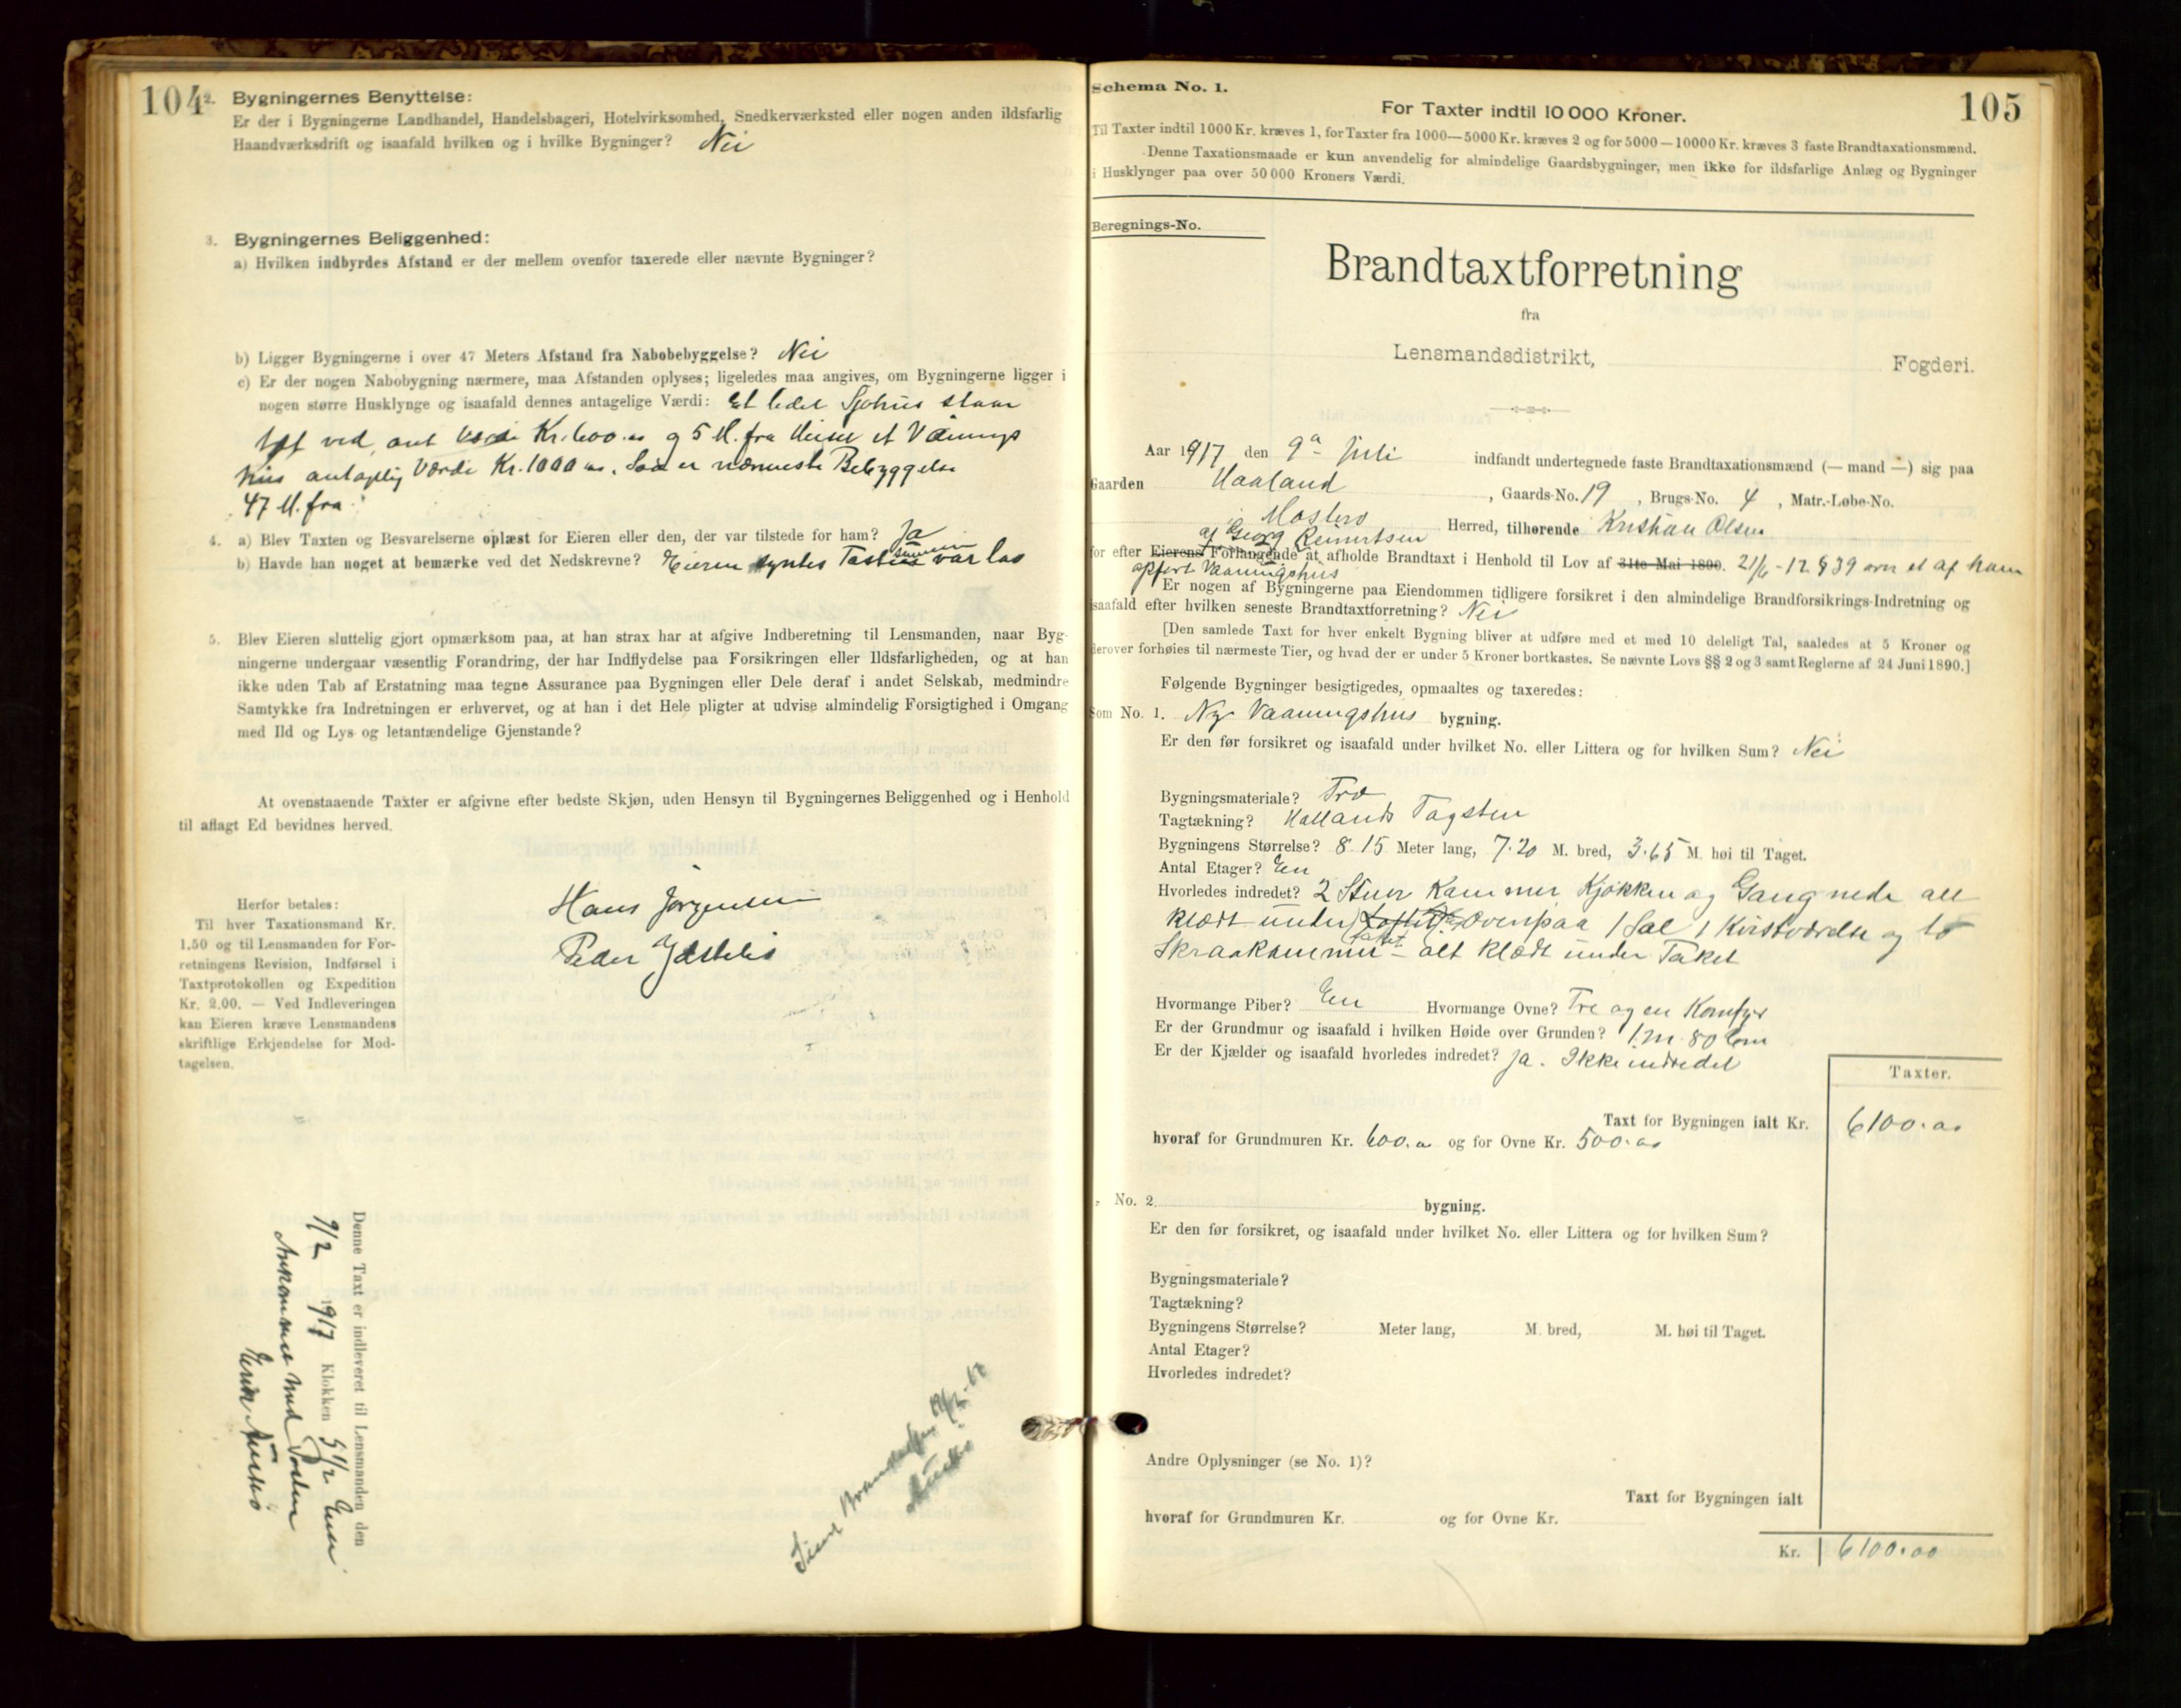 104
2. Bygningernes Benyttelse:
Er der i Bygningerne Landhandel, Handelsbageri, Hotelvirksomhed, Snedkerværksted eller nogen anden ildsfarlig
Haandværksdrift og isaafald hvilken og i hvilke Bygninger? Nei
3. Bygningernes Beliggenhed:
a) Hvilken indbyrdes Afstand er der mellem ovenfor taxerede eller nævnte Bygninger?
b) Ligger Bygningerne i over 47 Meters Afstand fra Nabobebyggelse? Nei
c) Er der nogen Nabobygning nærmere, maa Afstanden oplyses; ligeledes maa angives, om Bygningerne ligger i
nogen større Husklynge og isaafald dennes antagelige Værdi: Et lidet Sjøhus staar
tæt ved, ant Værdi Kr. 600.00 og 5 M. fra Huset et Vånings
hus antagelig Værdi Kr. 1000 00. Saa er nærmeste Bebyggelse
47 M. fra.
4. a) Blev Taxten og Besvarelserne oplæst for Eieren eller den, der var tilstede for ham? Ja
b) Havde han noget at bemærke ved det Nedskrevne? Eieren syntes summen var lav
5. Blev Eieren sluttelig gjort opmærksom paa, at han strax har at afgive Indberetning til Lensmanden, naar Byg-
ningerne undergaar væsentlig Forandring, der har Indflydelse paa Forsikringen eller Ildsfarligheden, og at han
ikke uden Tab af Erstatning maa tegne Assurance paa Bygningen eller Dele deraf i andet Selskab, medmindre
Samtykke fra Indretningen er erhvervet, og at han i det Hele pligter at udvise almindelig Forsigtighed i Omgang
med Ild og Lys og letantændelige Gjenstande?
At ovenstaaende Taxter er afgivne efter bedste Skjøn, uden Hensyn til Bygningernes Beliggenhed og i Henhold
til aflagt Ed bevidnes herved.
Herfor betales:
Til hver Taxationsmand Kr.
1.50 og til Lensmanden for For-
retningens Revision, Indførsel i
Taxtprotokollen og Expedition
Kr. 2.00. — Ved Indleveringen
kan Eieren kræve Lensmandens
skriftlige Erkjendelse for Mod-
tagelsen.
Hans Jørgensen
Peder
Denne Taxt er indleveret til Lensmanden den
9/2 1917 Klokken 5 1/2 Em
Ankommet med Posten
Schema No. 1.
105
For Taxter indtil 10 000 Kroner.
Til Taxter indtil 1000 Kr. kræves 1, for Taxter fra 1000—5000 Kr. kræves 2 og for 5000—10000 Kr. kræves 3 faste Brandtaxationsmænd.
Denne Taxationsmaade er kun anvendelig for almindelige Gaardsbygninger, men ikke for ildsfarlige Anlæg og Bygninger
i Husklynger paa over 50 000 Kroners Værdi.
Beregnings-No.
Brandtaxtforretning
fra
Lensmandsdistrikt, Fogderi.
Aar 1917 den 9de Juli indfandt undertegnede faste Brandtaxationsmænd (— mand —) sig paa
Gaarden Haaland, Gaards-No. 19, Brugs-No. 4, Matr.-Løbe-No.
i Mosterø Herred, tilhørende Kristian Olsen
af Georg Reinertsen
for efter Eierens Forlangende at afholde Brandtaxt i Henhold til Lov af 31te Mai 1890. 21/6 - 12 § 39 over et af ham
opført Vaaningshus
Er nogen af Bygningerne paa Eiendommen tidligere forsikret i den almindelige Brandforsikrings-Indretning og
isaafald efter hvilken seneste Brandtaxtforretning? Nei
[Den samlede Taxt for hver enkelt Bygning bliver at udføre med et med 10 deleligt Tal, saaledes at 5 Kroner og
derover forhøies til nærmeste Tier, og hvad der er under 5 Kroner bortkastes. Se nævnte Lovs §§ 2 og 3 samt Reglerne af 24 Juni 1890.]
Følgende Bygninger besigtigedes, opmaaltes og taxeredes:
Som No. 1. Ny Vaaningshus bygning.
Er den før forsikret og isaafald under hvilket No. eller Littera og for hvilken Sum? Nei
Bygningsmateriale? Træ
Tagtækning? Hollands Tagsten
Bygningens Størrelse? 8.15 Meter lang, 7.20 M. bred, 3.65 M. høi til Taget.
Antal Etager? En
Hvorledes indredet? 2 Stuer Kammer, Kjøkken og Gang nede alt
klædt under Ovenpaa 1 Sal 1 Kvistværelse og to
Skraakammer - alt klædt under Taket
Hvormange Piber? En Hvormange Ovne? Tre og en Komfyr
Er der Grundmur og isaafald i hvilken Høide over Grunden? 1 m 80 Cm
Er der Kjælder og isaafald hvorledes indredet? Ja. Ikke indredet
Taxter.
Taxt for Bygningen ialt Kr. 6100.00
hvoraf for Grundmuren Kr. 600.00 og for Ovne Kr. 500.00
No. 2 bygning.
Er den før forsikret, og isaafald under hvilket No. eller Littera og for hvilken Sum?
Bygningsmateriale?
Tagtækning?
Bygningens Størrelse? Meter lang, M. bred, M. høi til Taget.
Antal Etager?
Hvorledes indredet?
Andre Oplysninger (se No. 1)?
Taxt for Bygningen ialt
hvoraf for Grundmuren Kr. og for Ovne Kr.
Kr. 6100.00